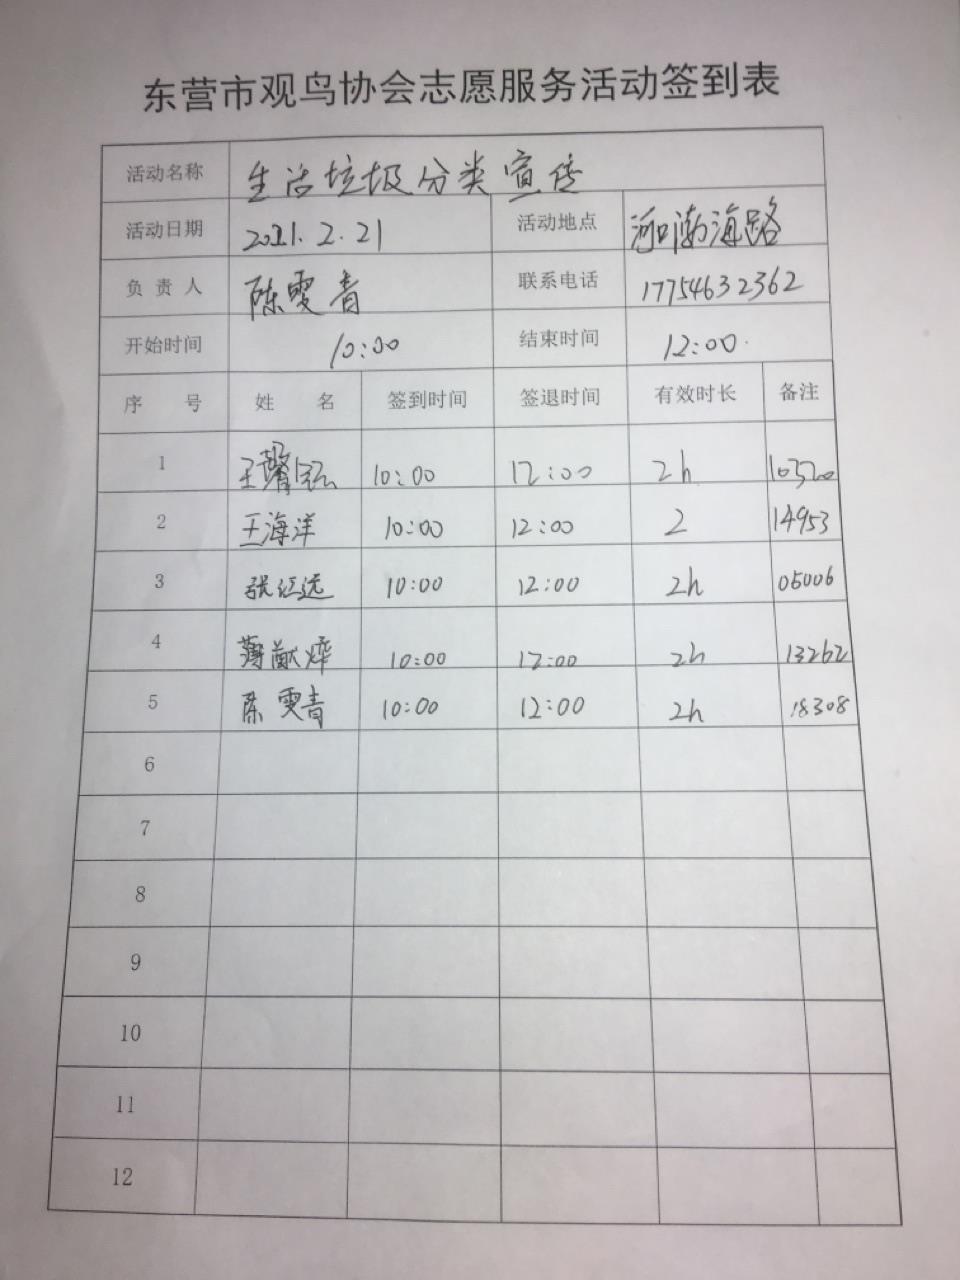 东营市观鸟协会志愿服务活动签到表
活动名称 生活垃圾分类宣传
活动日期 2021.2.21 活动地点 河口渤海路
负责人 陈雯青 联系电话 17754632362
开始时间 10:00 结束时间 12:00
序号 姓名 签到时间 签退时间 有效时长 备注
1 王馨 10:00 12:00 2h 10320
2 王海洋 10:00 12:00 2 14953
3 张江远 10:00 12:00 2h 05006
4 薄献烨 10:00 12:00 2h 13262
5 陈雯青 10:00 12:00 2h 18308
6
7
8
9
10
11
12